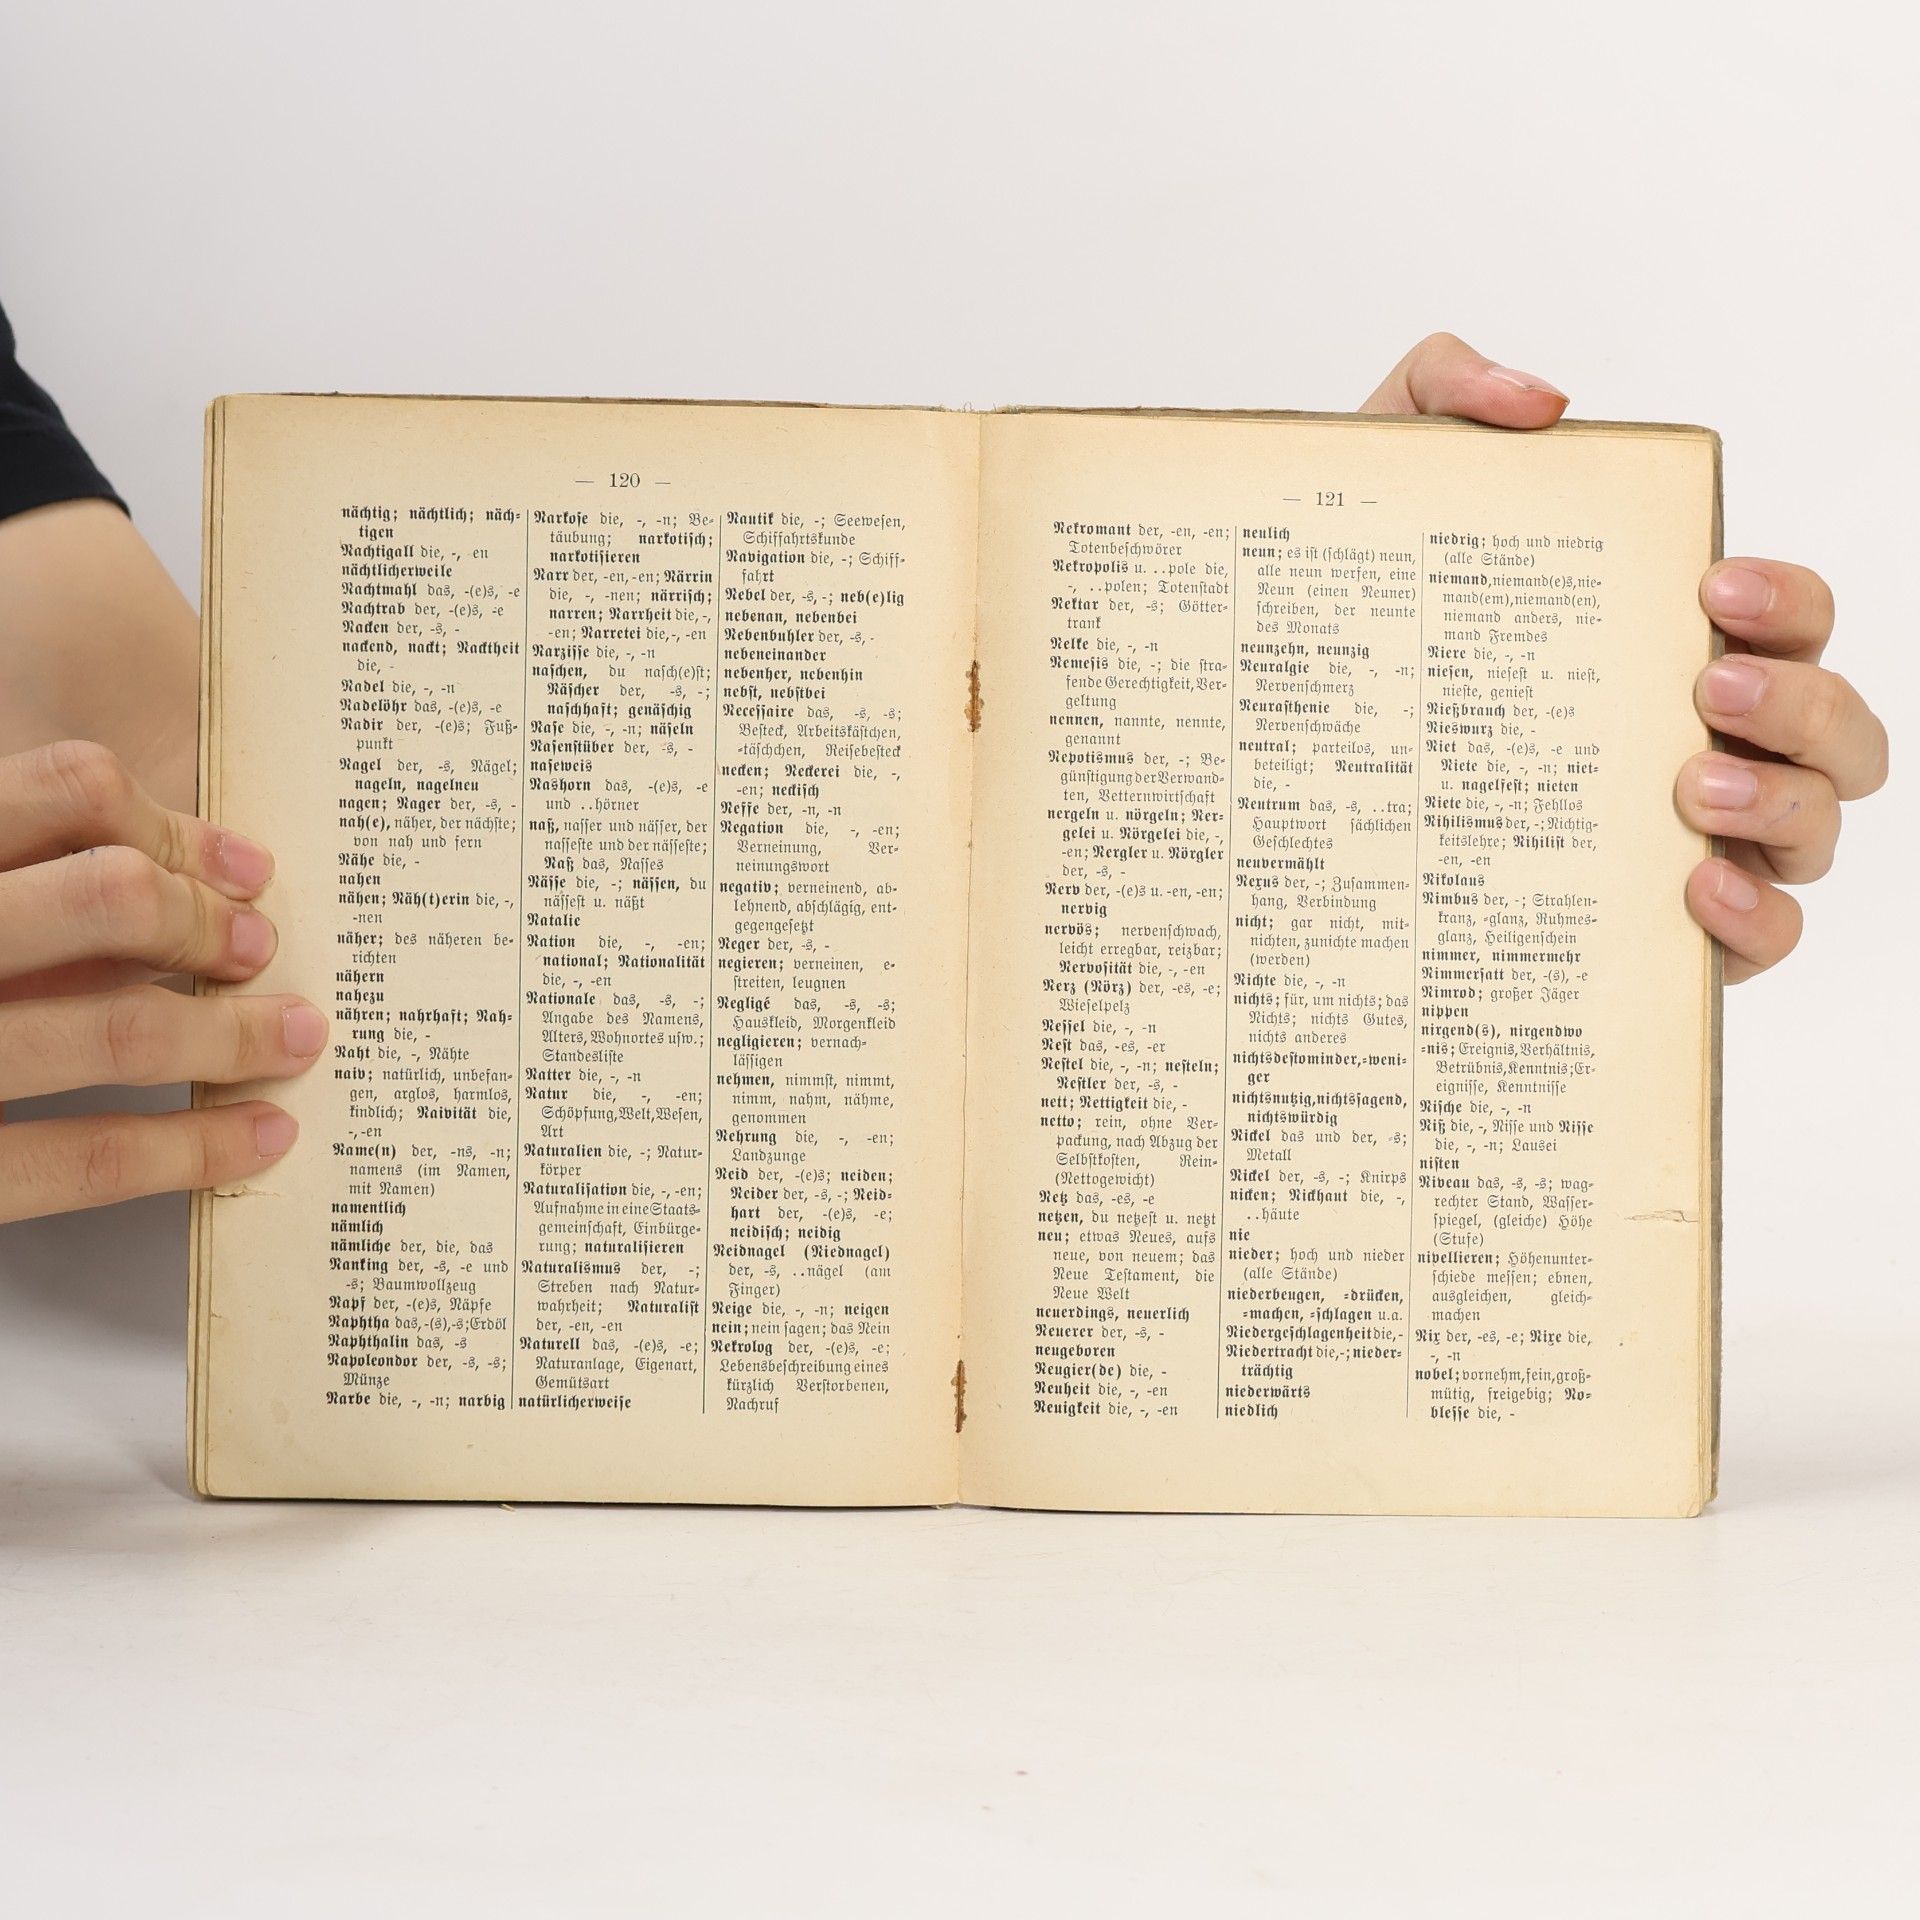 — 120 —
nächtig; nächtlich; näch-
tigen
Nachtigall die, -, en
nächtlicherweile
Nachtmahl das, -(e)s, -e
Nachtrab der, -(e)s, -e
Nacken der, -s, -
nackend, nackt; Nacktheit
die, -
Nadel die, -, -n
Nadelöhr das, -(e)s, -e
Nadir der, -(e)s; Fuß-
punkt
Nagel der, -s, Nägel;
nageln, nagelneu
nagen; Nager der, -s, -
nah(e), näher, der nächste;
von nah und fern
Nähe die, -
nahen
nähen; Näh(t)erin die, -,
-nen
näher; des näheren be-
richten
nähern
nahezu
nähren; nahrhaft; Nah-
rung die, -
Naht die, -, Nähte
naiv; natürlich, unbefan-
gen, arglos, harmlos,
kindlich; Naivität die,
-,-en
Name(n) der, -ns, -n;
namens (im Namen,
mit Namen)
namentlich
nämlich
nämliche der, die, das
Nanking der, -s, -e und
-s; Baumwollzeug
Napf der, -(e)s, Näpfe
Naphtha das,-(s),-s;Erdöl
Naphthalin das, -s
Napoleondor der, -s, -s;
Münze
Narbe die, -, -n; narbig
Narkose die, -, -n; Be-
täubung; narkotisch;
narkotisieren
Narr der, -en,-en; Närrin
die, -, -nen; närrisch;
narren; Narrheit die,-,
-en; Narretei die,-, -en
Narzisse die, -, -n
naschen, du nasch(e)st;
Näscher der, -s, -;
naschhaft; genäschig
Nase die, -, -n; näseln
Nasenstüber der, -s, -
naseweis
Nashorn das, -(e)s, -e
und ..hörner
naß, nasser und nässer, der
nasseste und der nässeste;
Naß das, Nasses
Nässe die, -; nässen, du
nässest u. näßt
Natalie
Nation die, -, -en;
national; Nationalität
die, -, -en
Nationale das, -s, -;
Angabe des Namens,
Alters, Wohnortes usw.;
Standesliste
Natter die, -, -n
Natur die, -, -en;
Schöpfung,Welt,Wesen,
Art
Naturalien die, -; Natur-
körper
Naturalisation die, -, -en;
Aufnahme in eine Staats-
gemeinschaft, Einbürge-
rung; naturalisieren
Naturalismus der, -;
Streben nach Natur-
wahrheit; Naturalist
der, -en, -en
Naturell das, -(e)s, -e;
Naturanlage, Eigenart,
Gemütsart
natürlicherweise
Nautik die, -; Seewesen,
Schiffahrtskunde
Navigation die, -; Schiff-
fahrt
Nebel der, -s,-; neb(e)lig
nebenan, nebenbei
Nebenbuhler der, -s, -
nebeneinander
nebenher, nebenhin
nebst, nebstbei
Necessaire das, -s, -s;
Besteck, Arbeitskästchen,
-täschchen, Reisebesteck
necken; Neckerei die, -,
-en; neckisch
Neffe der, -n, -n
Negation die, -, -en;
Verneinung, Ver-
neinungswort
negativ; verneinend, ab-
lehnend, abschlägig, ent-
gegengesetzt
Neger der, -s, -
negieren; verneinen, e-
streiten, leugnen
Negligé das, -s, -s;
Hauskleid, Morgenkleid
negligieren; vernach-
lässigen
nehmen, nimmst, nimmt,
nimm, nahm, nähme,
genommen
Nehrung die, -, -en;
Landzunge
Neid der, -(e)s; neiden;
Neider der, -s, -; Neid-
hart der, -(e)s, -e;
neidisch; neidig
Neidnagel (Niednagel)
der, -s, ..nägel (am
Finger)
Neige die, -, -n; neigen
nein; nein sagen; das Nein
Nekrolog der, -(e)s, -e;
Lebensbeschreibung eines
kürzlich Verstorbenen,
Nachruf
— 121 —
Nekromant der, -en, -en;
Totenbeschwörer
Nekropolis u. ..pole die,
-, ..polen; Totenstadt
Nektar der, -s; Götter-
trank
Nelke die, -, -n
Nemesis die, -; die stra-
fende Gerechtigkeit, Ver-
geltung
nennen, nannte, nennte,
genannt
Nepotismus der, -; Be-
günstigung der Verwand-
ten, Vetternwirtschaft
nergeln u. nörgeln; Ner-
gelei u. Nörgelei die, -,
-en; Nergler u. Nörgler
der, -s, -
Nerv der, -(e)s u. -en, -en;
nervig
nervös; nervenschwach,
leicht erregbar, reizbar;
Nervosität die, -, -en
Nerz (Nörz) der, -es, -e;
Wieselpelz
Nessel die, -, -n
Nest das, -es, -er
Nestel die, -, -n; nesteln;
Nestler der, -s, -
nett; Nettigkeit die, -
netto; rein, ohne Ver-
packung, nach Abzug der
Selbstkosten, Rein-
(Nettogewicht)
Netz das, -es, -e
netzen, du netzest u. netzt
neu; etwas Neues, aufs
neue, von neuem; das
Neue Testament, die
Neue Welt
neuerdings, neuerlich
Neuerer der, -s, -
neugeboren
Neugier(de) die, -
Neuheit die, -, -en
Neuigkeit die, -, -en
neulich
neun; es ist (schlägt) neun,
alle neun werfen, eine
Neun (einen Neuner)
schreiben, der neunte
des Monats
neunzehn, neunzig
Neuralgie die, -, -n;
Nervenschmerz
Neurasthenie die, -;
Nervenschwäche
neutral; parteilos, un-
beteiligt; Neutralität
die, -
Neutrum das, -s, ..tra;
Hauptwort sächlichen
Geschlechtes
neuvermählt
Nexus der, -; Zusammen-
hang, Verbindung
nicht; gar nicht, mit-
nichten, zunichte machen
(werden)
Nichte die, -, -n
nichts; für, um nichts; das
Nichts; nichts Gutes,
nichts anderes
nichtsdestominder,-weni-
ger
nichtsnutzig,nichtssagend,
nichtswürdig
Nickel das und der, -s;
Metall
Nickel der, -s, -; Knirps
nicken; Nickhaut die, -,
..häute
nie
nieder; hoch und nieder
(alle Stände)
niederbeugen, -drücken,
-machen, -schlagen u.a.
Niedergeschlagenheit die,-
Niedertracht die,-; nieder-
trächtig
niederwärts
niedlich
niedrig; hoch und niedrig
(alle Stände)
niemand,niemand(e)s,nie-
mand(em),niemand(en),
niemand anders, nie-
mand Fremdes
Niere die, -, -n
niesen, niesest u. niest,
nieste, geniest
Nießbrauch der, -(e)s
Nieswurz die, -
Niet das, -(e)s, -e und
Niete die, -, -n; niet-
u. nagelfest; nieten
Niete die, -, -n; Fehllos
Nihilismus der, -; Nichtig-
keitslehre; Nihilist der,
-en, -en
Nikolaus
Nimbus der, -; Strahlen-
kranz, -glanz, Ruhmes-
glanz, Heiligenschein
nimmer, nimmermehr
Nimmersatt der, -(s), -e
Nimrod; großer Jäger
nippen
nirgend(s), nirgendwo
-nis; Ereignis,Verhältnis,
Betrübnis,Kenntnis;Er-
eignisse, Kenntnisse
Nische die, -, -n
Niß die, -, Nisse und Nisse
die, -, -n; Lausei
nisten
Niveau das, -s, -s; wag-
rechter Stand, Wasser-
spiegel, (gleiche) Höhe
(Stufe)
nivellieren; Höhenunter-
schiede messen; ebnen,
ausgleichen, gleich-
machen
Nix der, -es, -e; Nixe die,
-, -n
nobel;vornehm,fein,groß-
mütig, freigebig; No-
blesse die, -